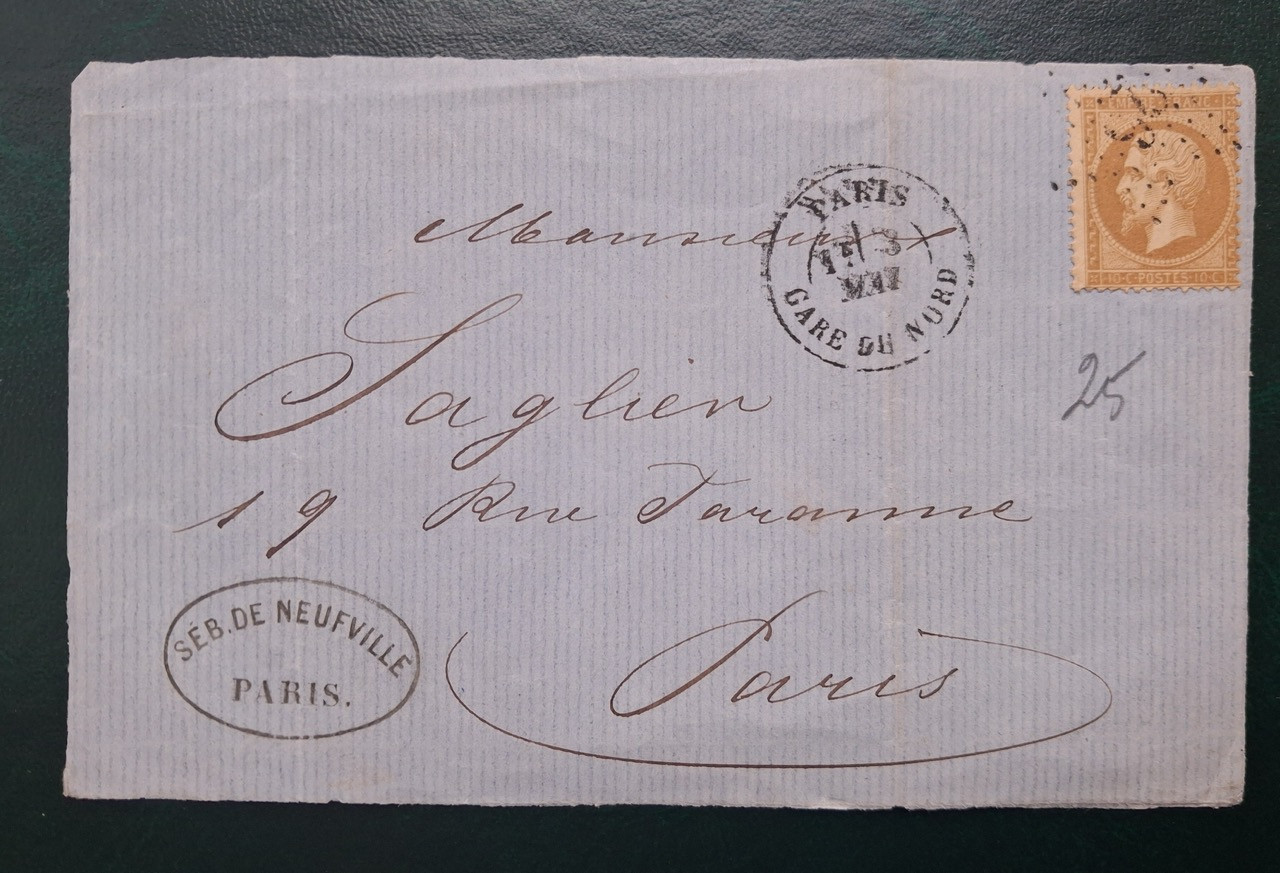 EMPIRE FRANC
10-C-POSTES-10-C
PARIS
3
MAI
GARE DU NORD
Monsieur
Saglier
19 Rue Taranne
Paris
25
SÉB. DE NEUFVILLE
PARIS.